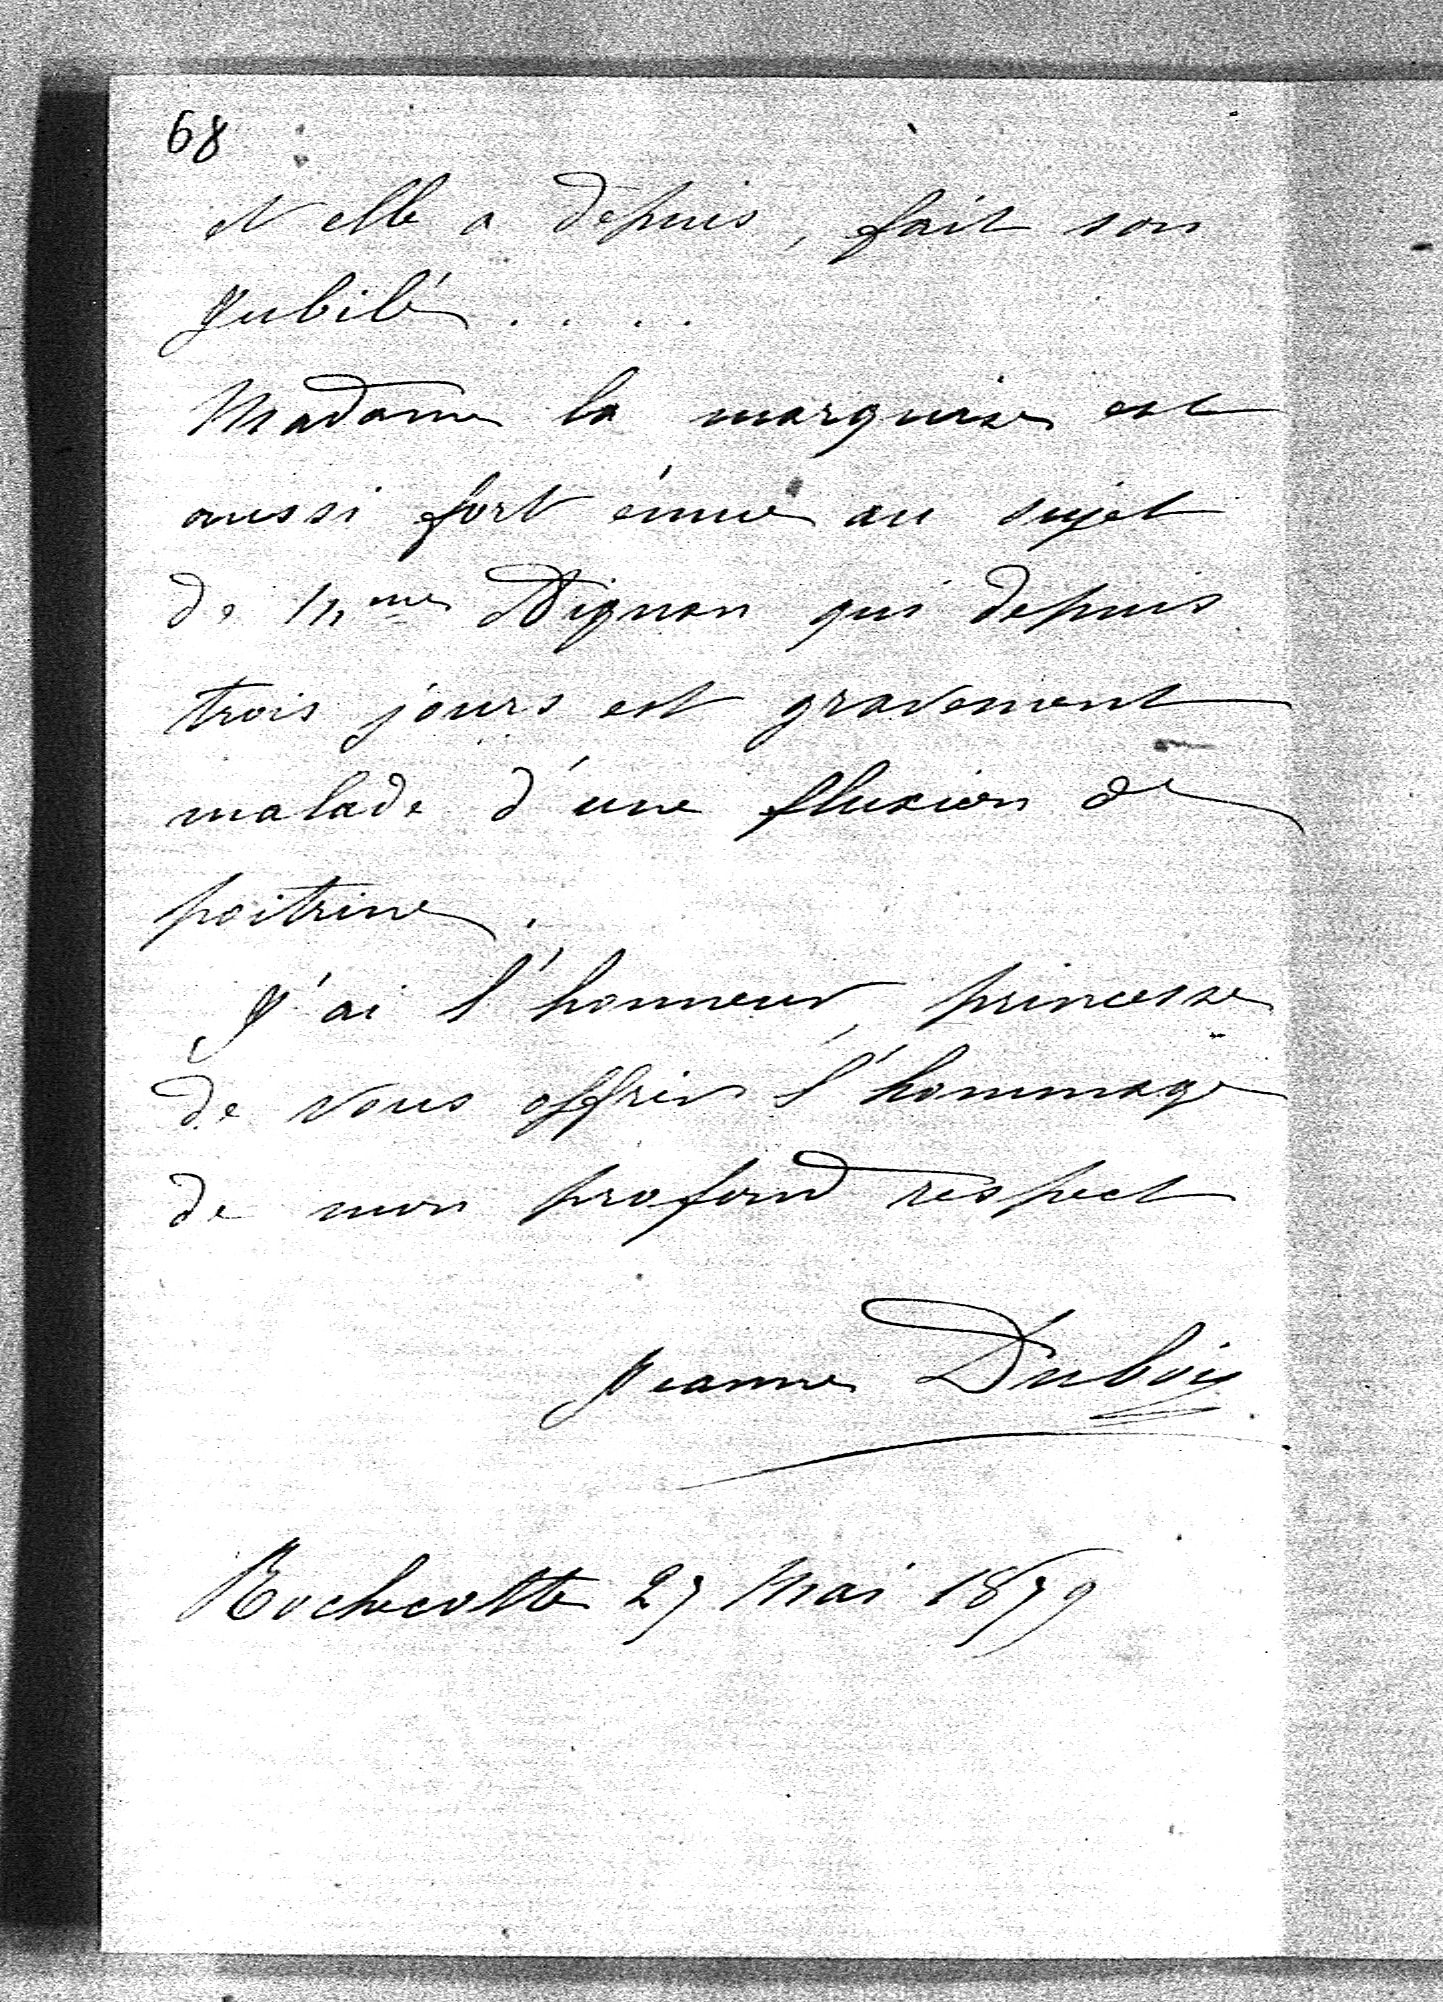 68
et elle a depuis, fait son
Jubilé.....
Madame la marquise est
aussi fort émue au sujet
de Mme qui depuis
trois jours est gravement
malade d'une fluxion de
poitrine.
J'ai l'honneur, princesse
de vous offrir l'hommage
de mon profond respect
Jeanne Dubois
Rochecotte 27 Mai 1879